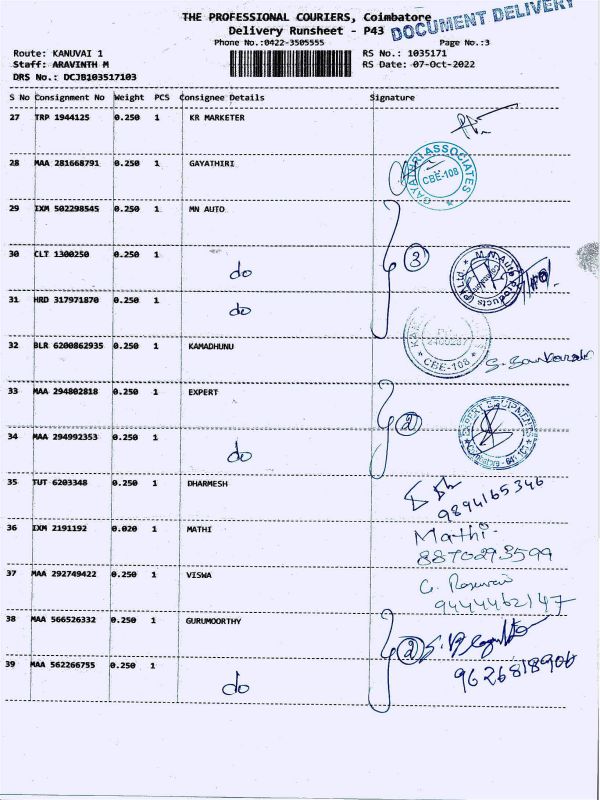 THE PROFESSIONAL COURIERS, Coimbatore
Delivery Runsheet - P43
DOCUMENT DELIVERY
Phone No.:0422-3505555
Page No.:3
Route: KANUVAI 1
RS No.: 1035171
Staff: ARAVINTH M
RS Date: 07-Oct-2022
DRS No.: DCJB103517103
S No Consignment No Weight PCS Consignee Details Signature
27 TRP 1944125 0.250 1 KR MARKETER
28 MAA 281668791 0.250 1 GAYATHIRI
GAYATHRI ASSOCIATES
CBE-108
29 IXM 502298545 0.250 1 MN AUTO
30 CLT 1300250 0.250 1
do
3
M.N. Auto Products (P) Ltd.
31 HRD 317971870 0.250 1
do
32 BLR 6200862935 0.250 1 KAMADHUNU
CBE-108
33 MAA 294802818 0.250 1 EXPERT
2
EXPERT EQUIPMENTS
34 MAA 294992353 0.250 1
do
35 TUT 6203348 0.250 1 DHARMESH
9894165346
36 IXM 2191192 0.020 1 MATHI
Mathi.
8870293599
37 MAA 292749422 0.250 1 VISWA
9444462147
38 MAA 566526332 0.250 1 GURUMOORTHY
2
39 MAA 562266755 0.250 1
do
9626818906